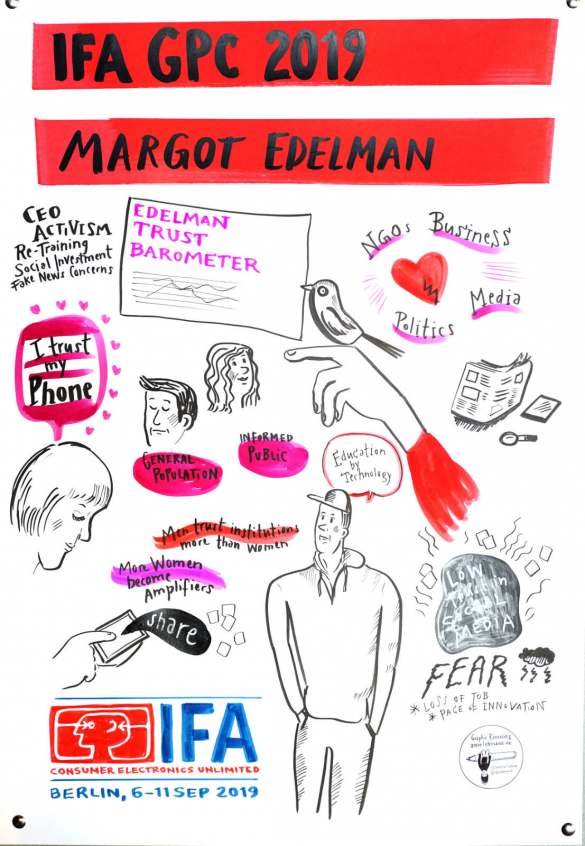 IFA GPC 2019
MARGOT EDELMAN
CEO
ACTIVISM
Re-Training
Social Investment
Fake News Concerns
EDELMAN
TRUST
BAROMETER
NGOs
Business
Media
Politics
I trust
my
Phone
GENERAL
POPULATION
INFORMED
PUBLIC
Education
by
Technology
Men trust institutions
more than women
More Women
become
Amplifiers
share
LOW
TRUST in
SOCIAL
MEDIA
FEAR
* LOSS OF JOB
* PACE OF INNOVATION
IFA
CONSUMER ELECTRONICS UNLIMITED
BERLIN, 6-11 SEP 2019
Graphic Recording